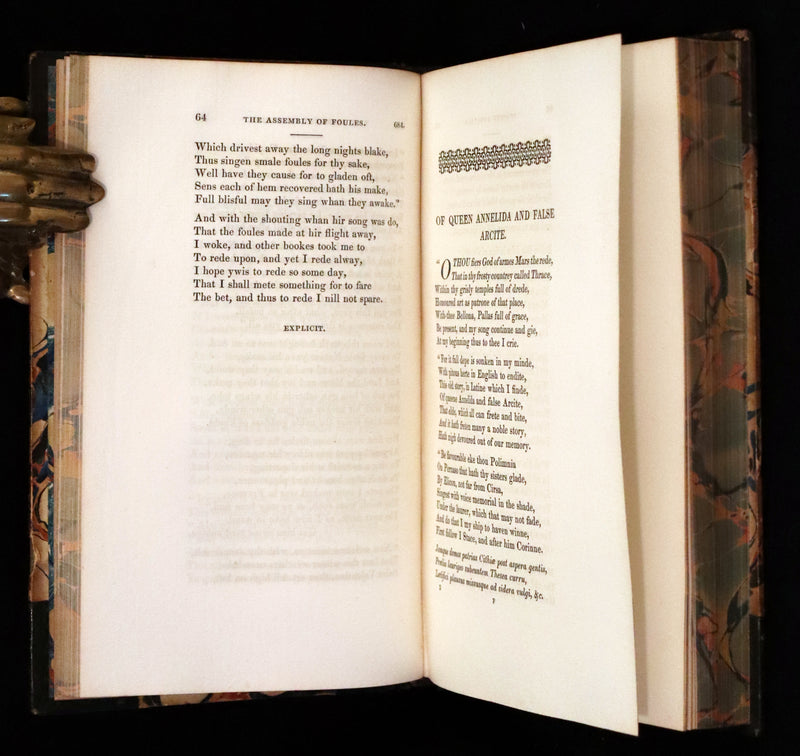 64 THE ASSEMBLY OF FOULES. 684.
Which drivest away the long nights blake,
Thus singen smale foules for thy sake,
Well have they cause for to gladen oft,
Sens each of hem recovered hath his make,
Full blisful may they sing whan they awake."
And with the shouting whan hir song was do,
That the foules made at hir flight away,
I woke, and other bookes took me to
To rede upon, and yet I rede alway,
I hope ywis to rede so some day,
That I shall mete something for to fare
The bet, and thus to rede I nill not spare.
EXPLICIT.
OF QUEEN ANNELIDA AND FALSE
ARCITE.
"O THOU fiers God of armes Mars the rede,
That in thy frosty countrey called Thrace,
Within thy grisly temples full of drede,
Honoured art as patrone of that place,
With thee Bellona, Pallas full of grace,
Be present, and my song continue and gie,
At my beginning thus to thee I crie.
"For it full depe is sonken in my minde,
With pitous herte in English to endite,
This old story, in Latine which I finde,
Of queene Annelida and false Arcite,
That elde, which all can frete and bite,
And it hath freton many a noble story,
Hath nigh devoured out of our memory.
"Be favourable eke thou Polimnia
On Pernaso that hath thy sisters glade,
By Elicon, not far from Cirsa,
Singest with voice memorial in the shade,
Under the laurer, which that may not fade,
And do that I my ship to haven winne,
First follow I Stace, and after him Corinne.
Jamque domos patrias Cithiæ post aspera gentis,
Prælia laurigero subeuntem Thesea curru,
Lætifici plausus missusque ad sidera vulgi, &c.
F